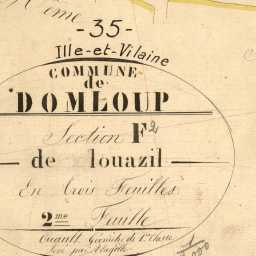 - 35 -
Ille-et-Vilaine
COMMUNE
de
DOMLOUP
Section F2
de louazil
En trois Feuilles
2me Feuille
Géomètre de 1re Classe